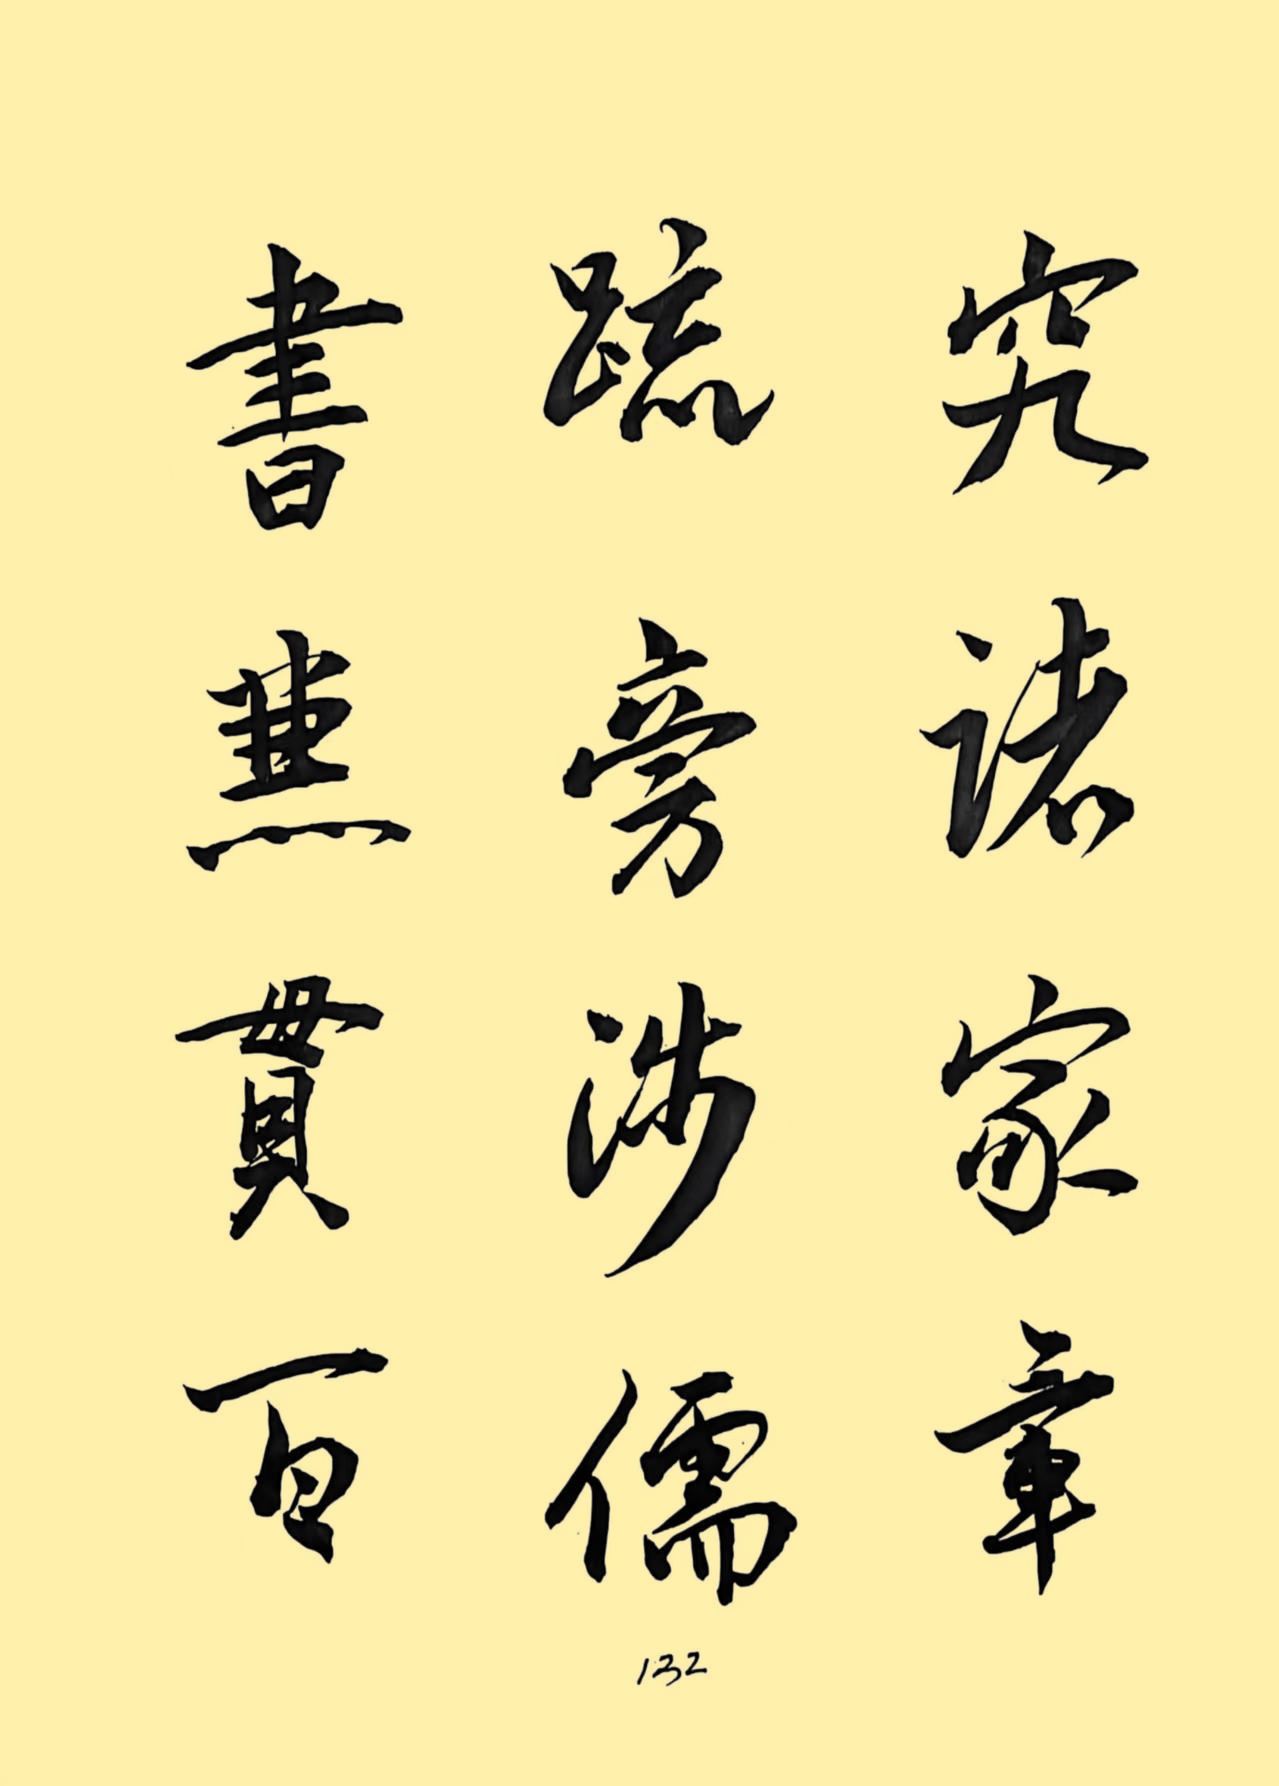 究諸家章
䟽旁涉儒
書兼貫百
132